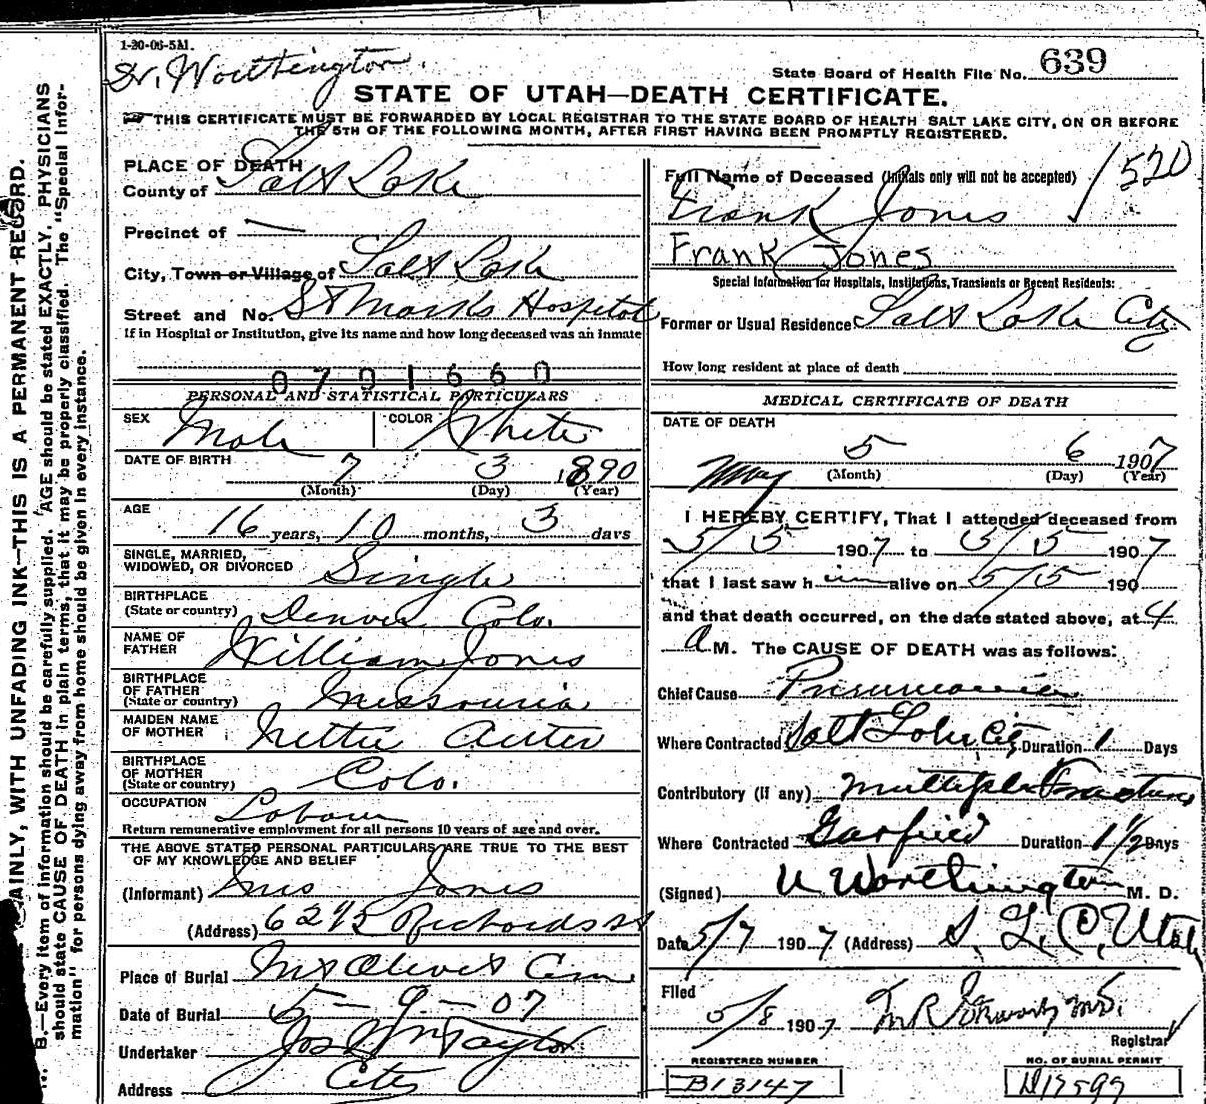 1-20-06-5M.
Dr. Worthington.
State Board of Health File No. 639
STATE OF UTAH—DEATH CERTIFICATE.
THIS CERTIFICATE MUST BE FORWARDED BY LOCAL REGISTRAR TO THE STATE BOARD OF HEALTH SALT LAKE CITY, ON OR BEFORE
THE 5TH OF THE FOLLOWING MONTH, AFTER FIRST HAVING BEEN PROMPTLY REGISTERED.
PLACE OF DEATH
County of Salt Lake
Precinct of —
City, Town or Village of Salt Lake
Street and No. St Marks Hospital
If in Hospital or Institution, give its name and how long deceased was an inmate
0701660
PERSONAL AND STATISTICAL PARTICULARS
SEX Male COLOR White
DATE OF BIRTH 7 3 1890
(Month) (Day) (Year)
AGE
16 years, 10 months, 3 days
SINGLE, MARRIED,
WIDOWED, OR DIVORCED Single
BIRTHPLACE
(State or country) Denver Colo.
NAME OF
FATHER William Jones
BIRTHPLACE
OF FATHER
(State or country) Missouria
MAIDEN NAME
OF MOTHER Nettie
BIRTHPLACE
OF MOTHER
(State or country) Colo.
OCCUPATION Labour
Return remunerative employment for all persons 10 years of age and over.
THE ABOVE STATED PERSONAL PARTICULARS ARE TRUE TO THE BEST
OF MY KNOWLEDGE AND BELIEF
(Informant) Mrs Jones
(Address) Richards St
Place of Burial Mt Olivet Cem.
Date of Burial 5 — 9 — 07
Undertaker Jos Wm Taylor
Address City
1520
Full Name of Deceased (Initials only will not be accepted)
Frank Jones
Frank Jones
Special Information for Hospitals, Institutions, Transients or Recent Residents:
Former or Usual Residence Salt Lake City
How long resident at place of death
MEDICAL CERTIFICATE OF DEATH
DATE OF DEATH
May 5 6 1907
(Month) (Day) (Year)
I HEREBY CERTIFY, That I attended deceased from
5/5 1907 to 5/5 1907
that I last saw him alive on 5/5 190
and that death occurred, on the date stated above, at 4
A M. The CAUSE OF DEATH was as follows:
Chief Cause Pneumonia
Where Contracted Salt Lake City Duration 1 Days
Contributory (if any) Multiple Fractures
Where Contracted Garfield Duration 1 1/2 Days
(Signed) U Worthington M. D.
Date 5/7 1907 (Address) S. L. C, Utah
Filed
5/8 1907 M.D.
Registrar
REGISTERED NUMBER
B13147
NO. OF BURIAL PERMIT
AINLY, WITH UNFADING INK—THIS IS A PERMANENT RECORD.
B.—Every item of information should be carefully supplied. AGE should be stated EXACTLY. PHYSICIANS
should state CAUSE OF DEATH in plain terms, that it may be properly classified. The "Special Infor-
mation" for persons dying away from home should be given in every instance.